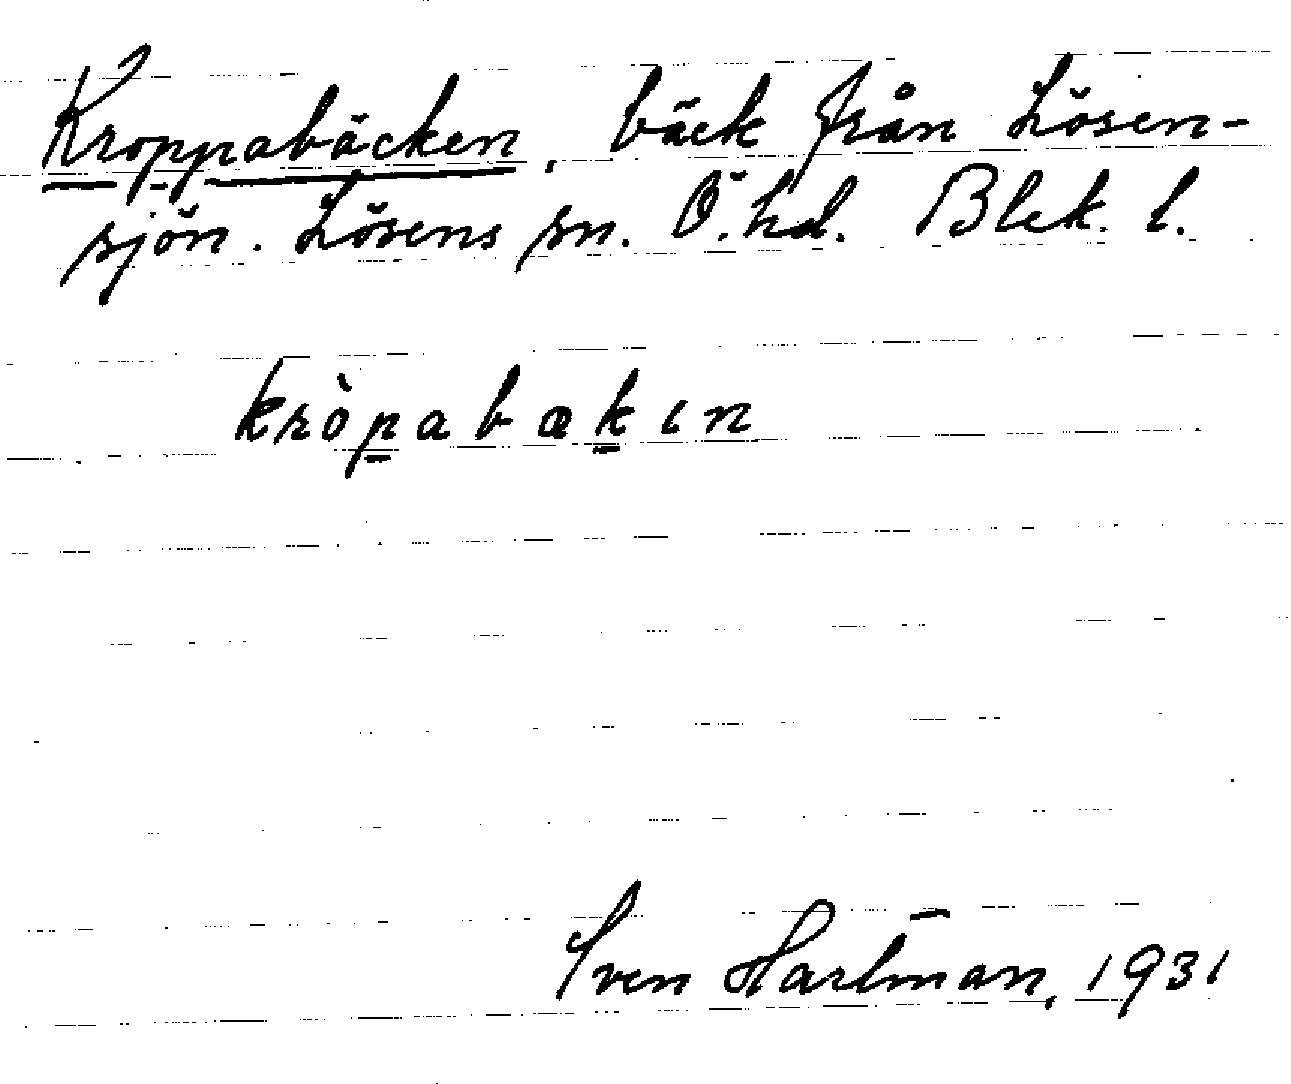 Kroppabäcken, bäck från Lösen-
sjön. Lösens sn. Ö. hd. Blek. l.
kròpabækın
Sven Hartman, 1931